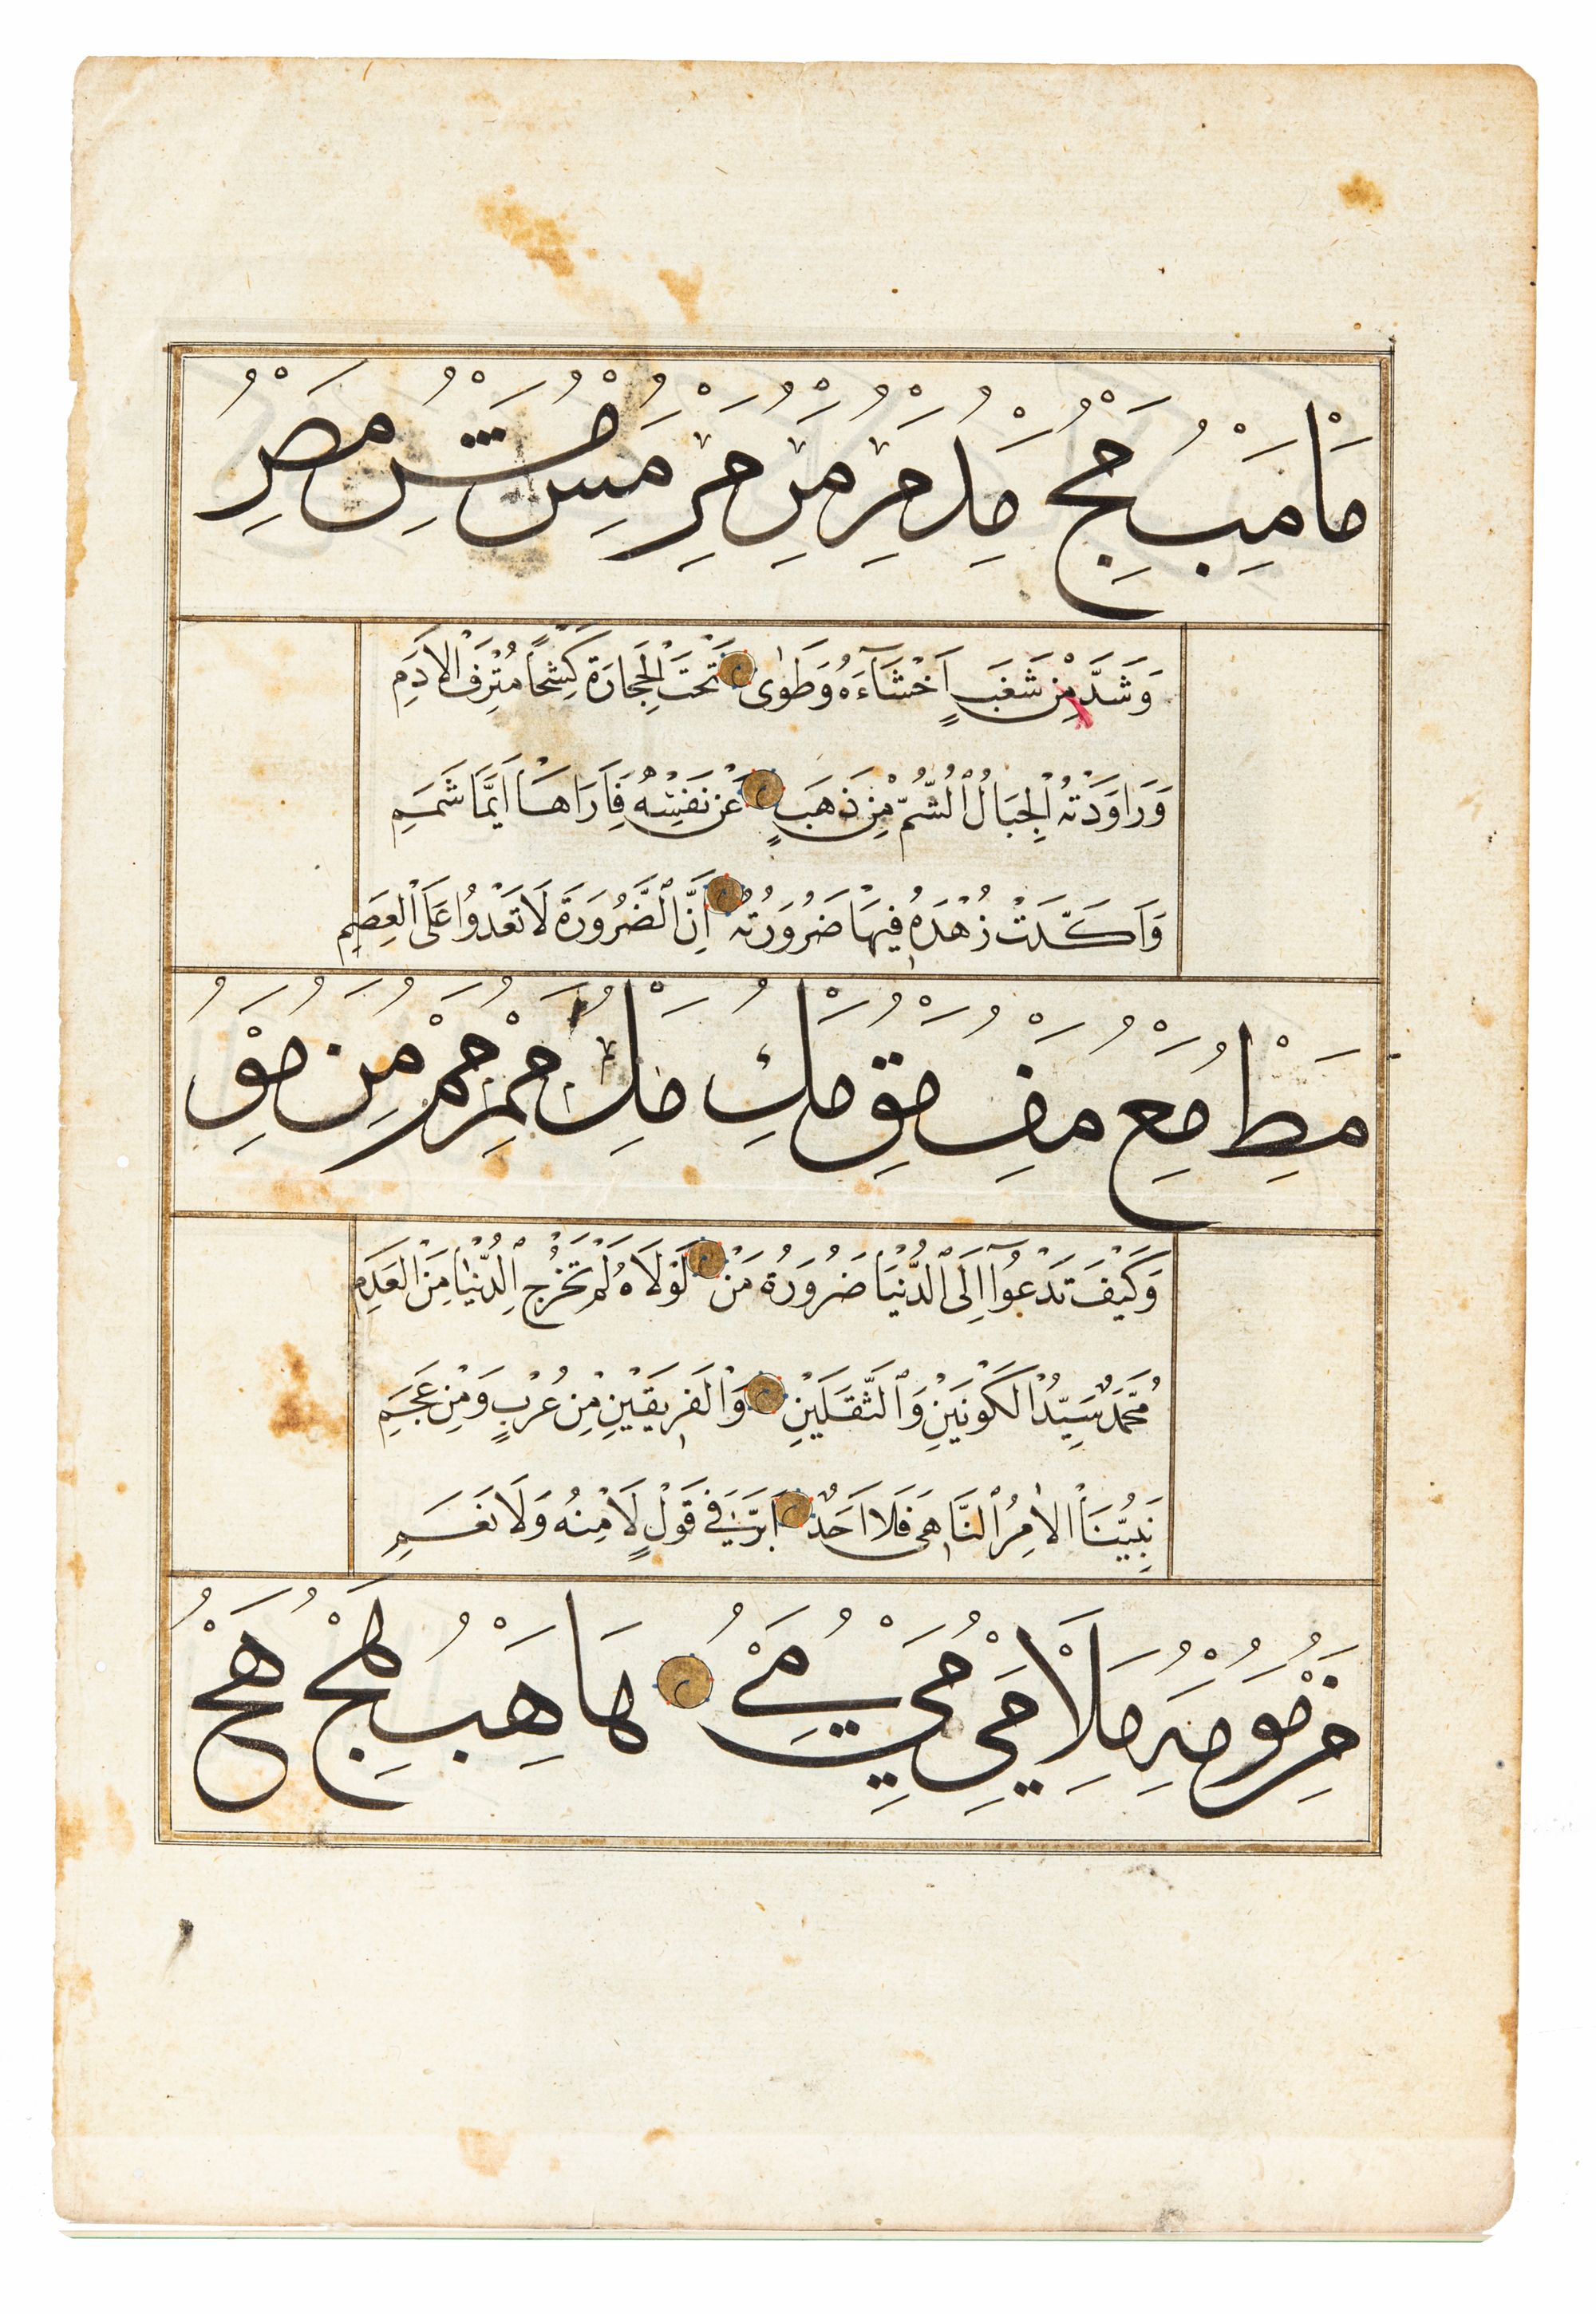 ما مب مج مد مر مر مر مس مش مص
وَشَدَّ مِنْ سَغَبٍ اَحْشَآءَهُ وَطَوٰى تَحْتَ الْحِجَارَةِ كَشْحًا مُتْرَفَ الْاَدَمِ
وَرَاوَدَتْهُ الْجِبَالُ الشُّمُّ مِنْ ذَهَبٍ عَنْ نَفْسِهٖ فَاَرَاهَا اَيَّمَا شَمَمِ
وَاَكَّدَتْ زُهْدَهُ فِيهَا ضَرُورَتُهُ اِنَّ الضَّرُورَةَ لَا تَعْدُوا عَلَى الْعِصَمِ
مط مع مف مق مك مل مم مم من مو
وَكَيْفَ تَدْعُوٓا اِلَى الدُّنْيَا ضَرُورَةُ مَنْ لَوْلَاهُ لَمْ تَخْرُجِ الدُّنْيَا مِنَ الْعَدَمِ
مُحَمَّدٌ سَيِّدُ الْكَوْنَيْنِ وَالثَّقَلَيْنِ وَالْفَرِيقَيْنِ مِنْ عُرْبٍ وَمِنْ عَجَمِ
نَبِيُّنَا الْاٰمِرُ النَّاهِى فَلَا اَحَدٌ اَبَرَّ فِى قَوْلِ لَا مِنْهُ وَلَا نَعَمِ
من مو مه ملا مى مى مى ها هب هج هج